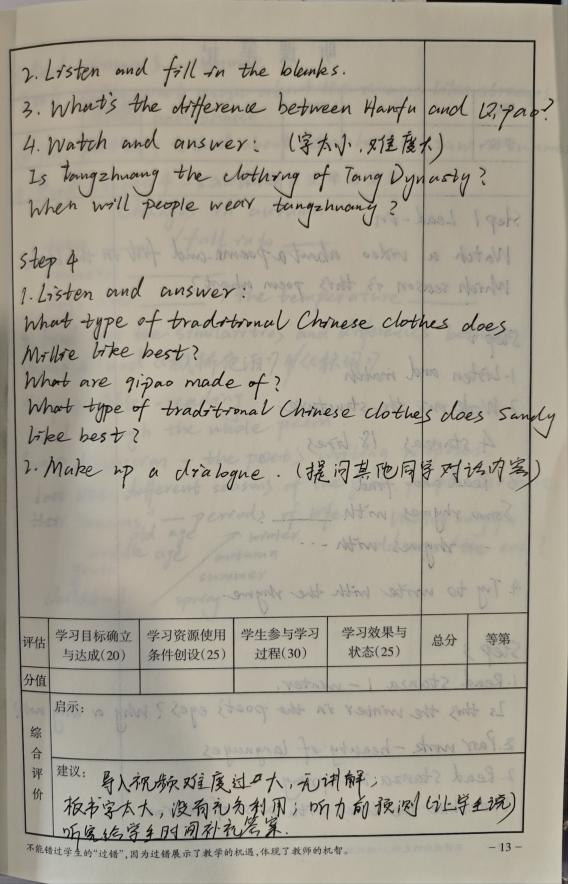 2. Listen and fill in the blanks.
3. What's the difference between Hanfu and Qipao?
4. Watch and answer: (字太小,难度大)
Is tangzhuang the clothing of Tang Dynasty?
When will people wear tangzhuang?
Step 4
1. Listen and answer:
What type of traditional Chinese clothes does
Millie like best?
What are qipao made of?
What type of traditional Chinese clothes does Sandy
like best?
2. Make up a dialogue. (提问其他同学对话内容)
评估 学习目标确立与达成(20) 学习资源使用条件创设(25) 学生参与学习过程(30) 学习效果与状态(25) 总分 等第
分值
综合评价
启示:
建议: 导入视频难度过大,无讲解;
板书字太大,没有充分利用;听力前预测(让学生说)
听完给学生时间补充答案.
不能错过学生的“过错”,因为过错展示了教学的机遇,体现了教师的机智。 -13-